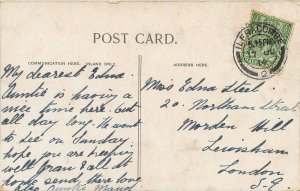 POST CARD.
COMMUNICATION HERE. INLAND ONLY.
ADDRESS HERE.
My dearest Edna
Auntie is having a
nice time here. but
all day long. We went
to see on Sunday.
hope you are keeping
well Gran & all
send, there love
Auntie Maud
Miss Edna Steel
20. Northam Street
Morden Hill
Lewisham
London
S.E
ILFRACOMBE